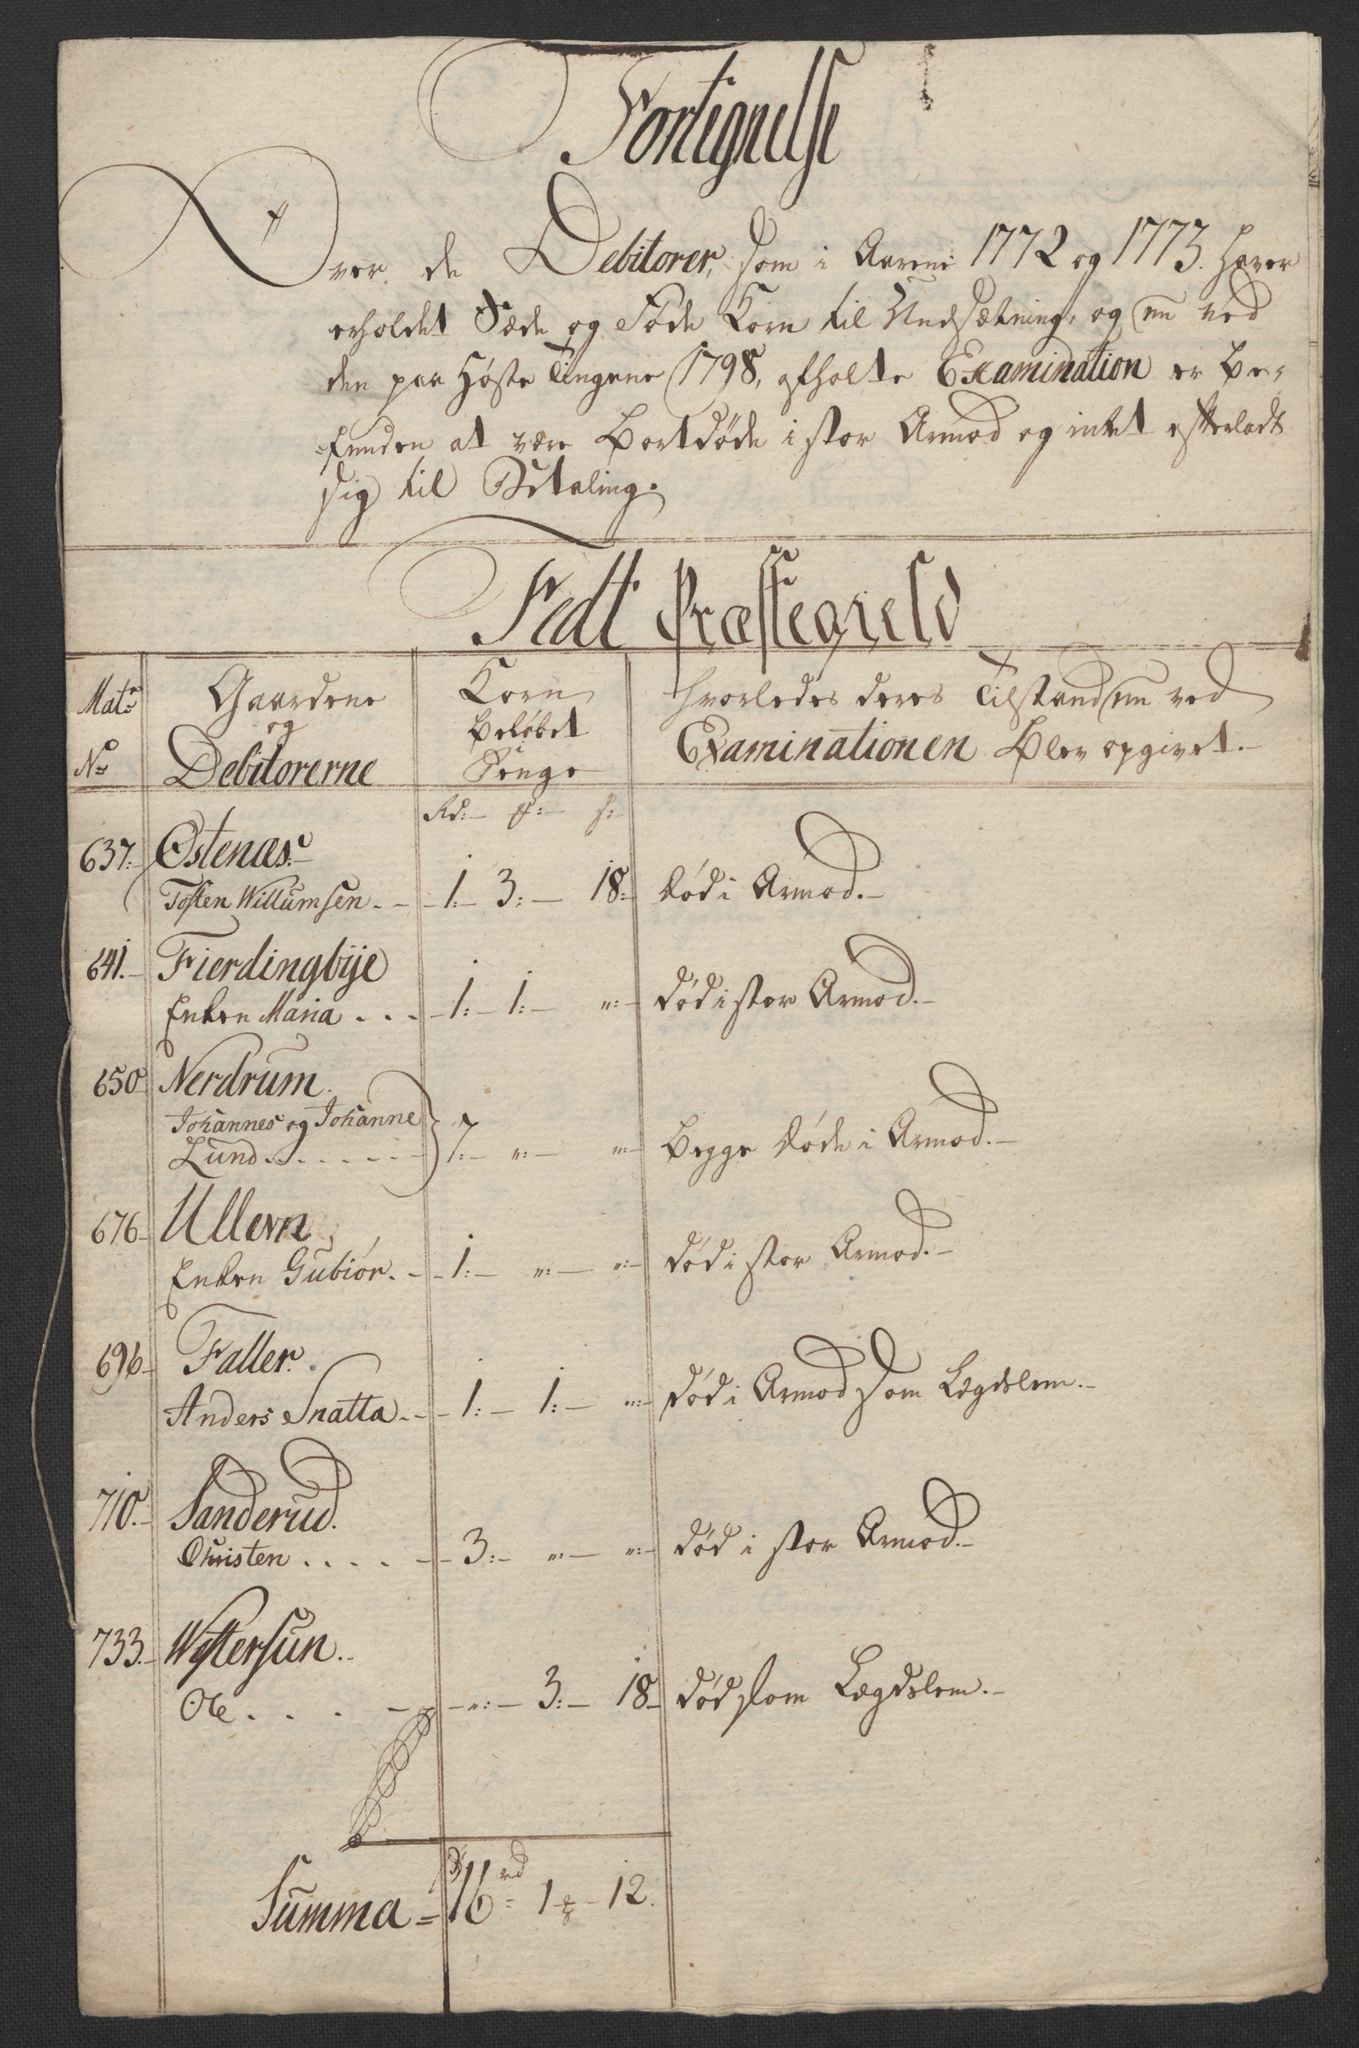 Fortegnelse
Over de Debitorer, som i Aarene 1772 og 1773. haver
erholdet Sæde og Føde Korn til Undsætning, og nu ved
den paa Høste Tingene 1798, afholte Examination er be-
funden at være Bortdøde i stor Armod og intet efterladt
sig til Betaling.
Fedt Præstegield
Matr No
Gaardene og Debitorerne
Korn beløbet i Penge
Hvorledes deres Tilstand nu ved
Examinationen blev opgivet.
Rd: f: s:
637. Østenæs.
Tosten Willumsen 1: 3: 18: død i Armod.
641. Fierdingbÿe
Enken Maria 1: 1: ": død i stor Armod.
650 Nerdrum.
Johannes og Johanne
Lund 7: ": " Begge døde i Armod.
676 Ullern
Enken Gubiør 1: ": ": død i stor Armod.
696 Faller.
Anders Snatta 1: 1: ": død i Armod som Lægdslem.
710. Sanderud.
Christen 3: ": ": død i stor Armod.
733. Westersun.
Ole ": 3: 18 død som Lægdslem.
Summa = 16 rd 1 f 12.